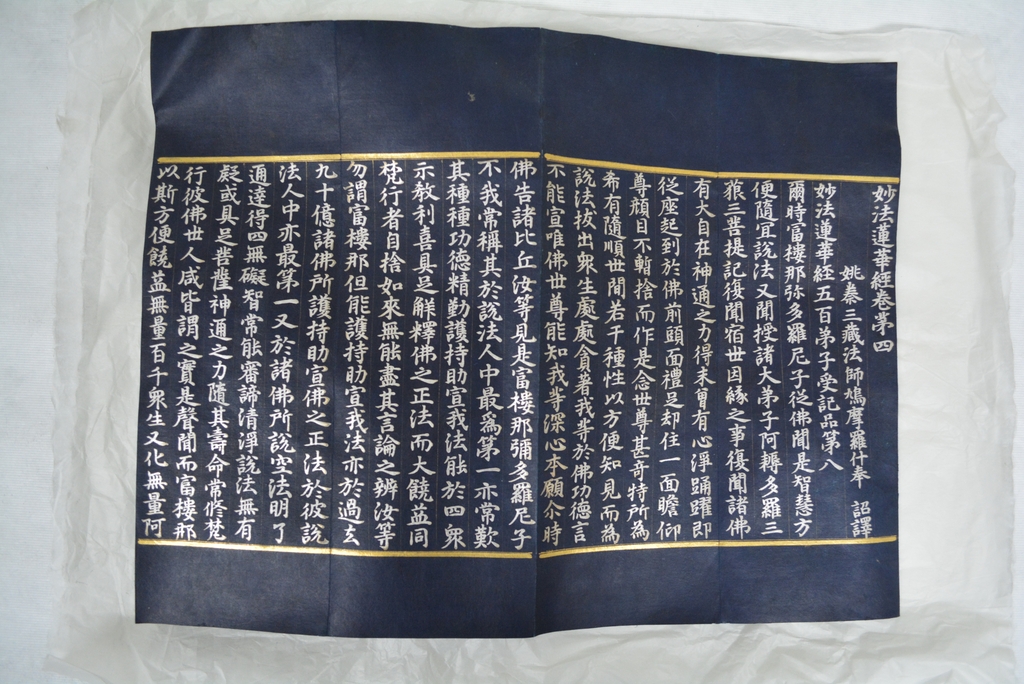 妙法蓮華經卷第四
姚秦三藏法師鳩摩羅什奉 詔譯
妙法蓮華經五百弟子受記品第八
爾時富樓那弥多羅尼子從佛聞是智慧方
便隨宜說法又聞授諸大弟子阿耨多羅三
藐三菩提記復聞宿世因緣之事復聞諸佛
有大自在神通之力得未曾有心淨踊躍即
從座起到於佛前頭面禮足却住一面瞻仰
尊顔目不暫捨而作是念世尊甚奇特所為
希有隨順世間若干種性以方便知見而為
說法拔出衆生處處貪著我等於佛功德言
不能宣唯佛世尊能知我等深心本願尒時
佛告諸比丘汝等見是富樓那彌多羅尼子
不我常稱其於說法人中最爲第一亦常歎
其種種功德精勤護持助宣我法能於四衆
示教利喜具足解釋佛之正法而大饒益同
梵行者自捨如來無能盡其言論之辨汝等
勿謂富樓那但能護持助宣我法亦於過去
九十億諸佛所護持助宣佛之正法於彼說
法人中亦最第一又於諸佛所說空法明了
通達得四無礙智常能審諦清淨說法無有
疑惑具足菩薩神通之力隨其壽命常修梵
行彼佛世人咸皆謂之實是聲聞而富樓那
以斯方便饒益無量百千衆生又化無量阿